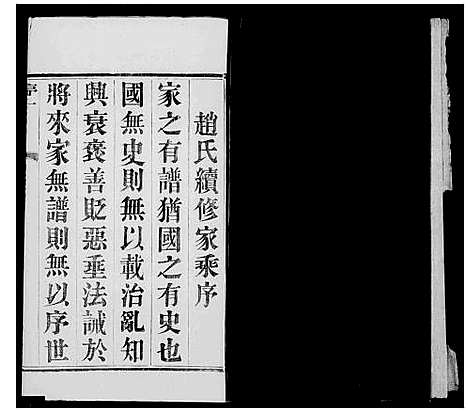 趙氏續修家乘序
家之有譜猶國之有史也
國無史則無以載治亂知
興衰褒善貶惡垂法誡於
將來家無譜則無以序世